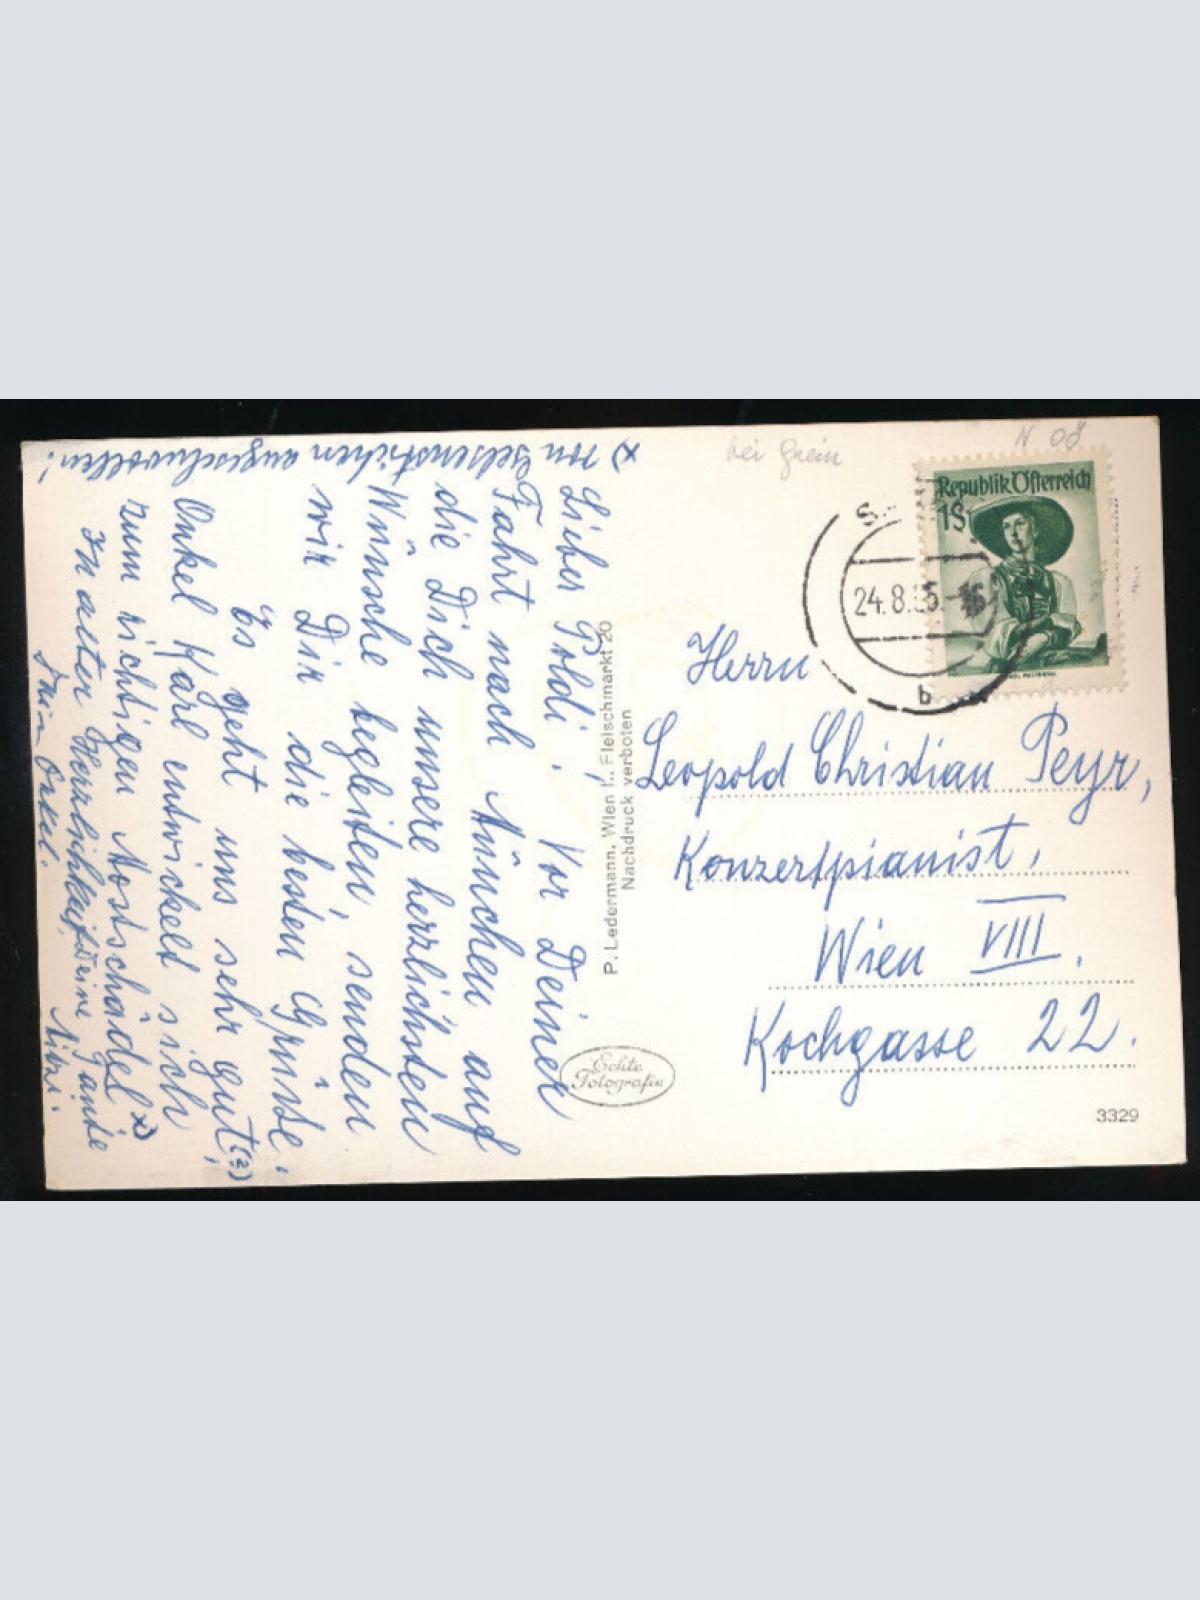 Lieber Poldi! Vor Deiner
Fahrt nach München auf
die Dich unsere herzlichsten
Wünsche begleiten, senden
wir Dir die besten Grüsse.
Es geht uns sehr gut, (?)
Onkel Karl entwickelt sich
zum richtigen Mostschädel x)
In alter Herzlichkeit Deine Tante
Mitzi.
Dein Onkel.
x) von Gelsenstichen angeschwollen!
P. Ledermann, Wien I., Fleischmarkt 20
Nachdruck verboten
Echte
Fotografie
bei Grein
N OÖ
Republik Österreich
1S
24.8.
b
Herrn
Leopold Christian Peyr,
Konzertpianist,
Wien VIII.
Kochgasse 22.
3329